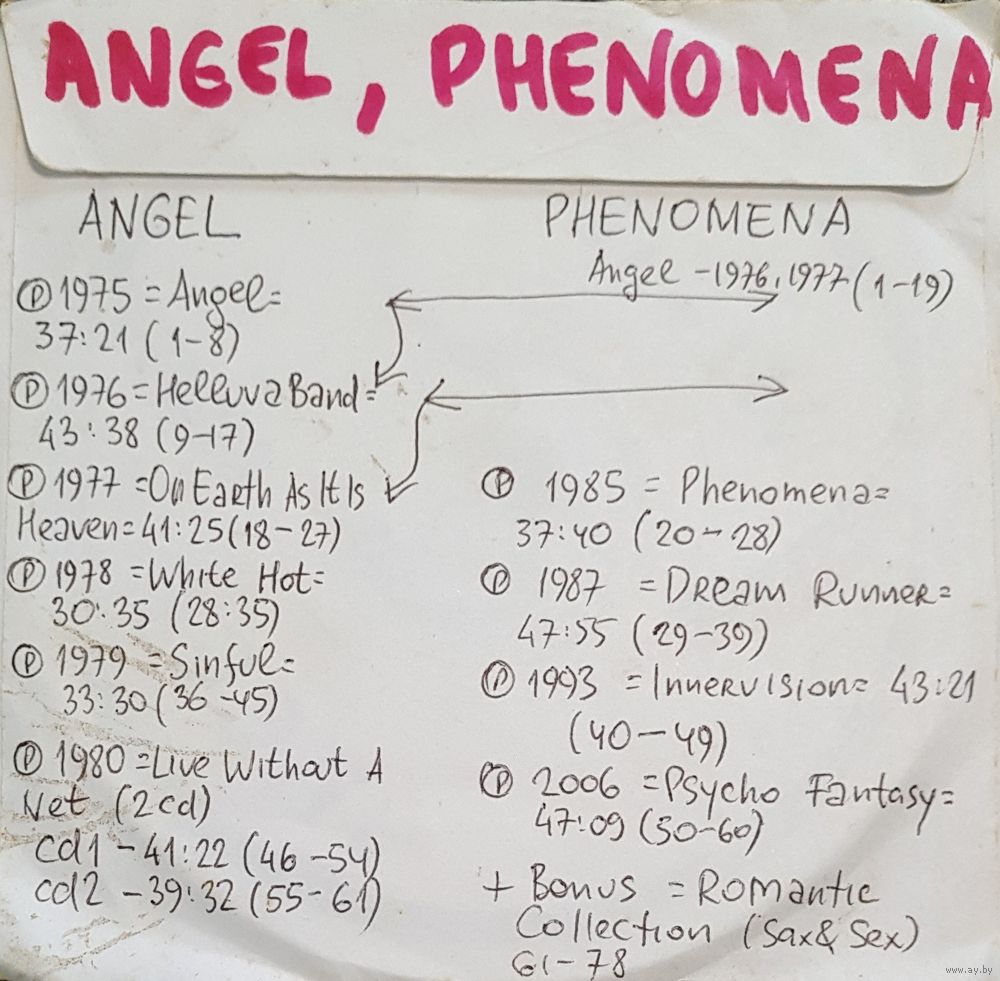 ANGEL, PHENOMENA
ANGEL
Ⓟ 1975 = Angel =
37:21 (1-8)
Ⓟ 1976 = Helluva Band =
43:38 (9-17)
Ⓟ 1977 = On Earth As It Is
Heaven = 41:25 (18-27)
Ⓟ 1978 = White Hot =
30:35 (28:35)
Ⓟ 1979 = Sinful =
33:30 (36-45)
Ⓟ 1980 = Live Without A
Net (2cd)
cd1 - 41:22 (46-54)
cd2 - 39:32 (55-61)
PHENOMENA
Angel - 1976, 1977 (1-19)
Ⓟ 1985 = Phenomena =
37:40 (20-28)
Ⓟ 1987 = Dream Runner =
47:55 (29-39)
Ⓟ 1993 = Innervision = 43:21
(40-49)
Ⓟ 2006 = Psycho Fantasy =
47:09 (50-60)
+ Bonus = Romantic
Collection (Sax & Sex)
61-78
www.ay.by